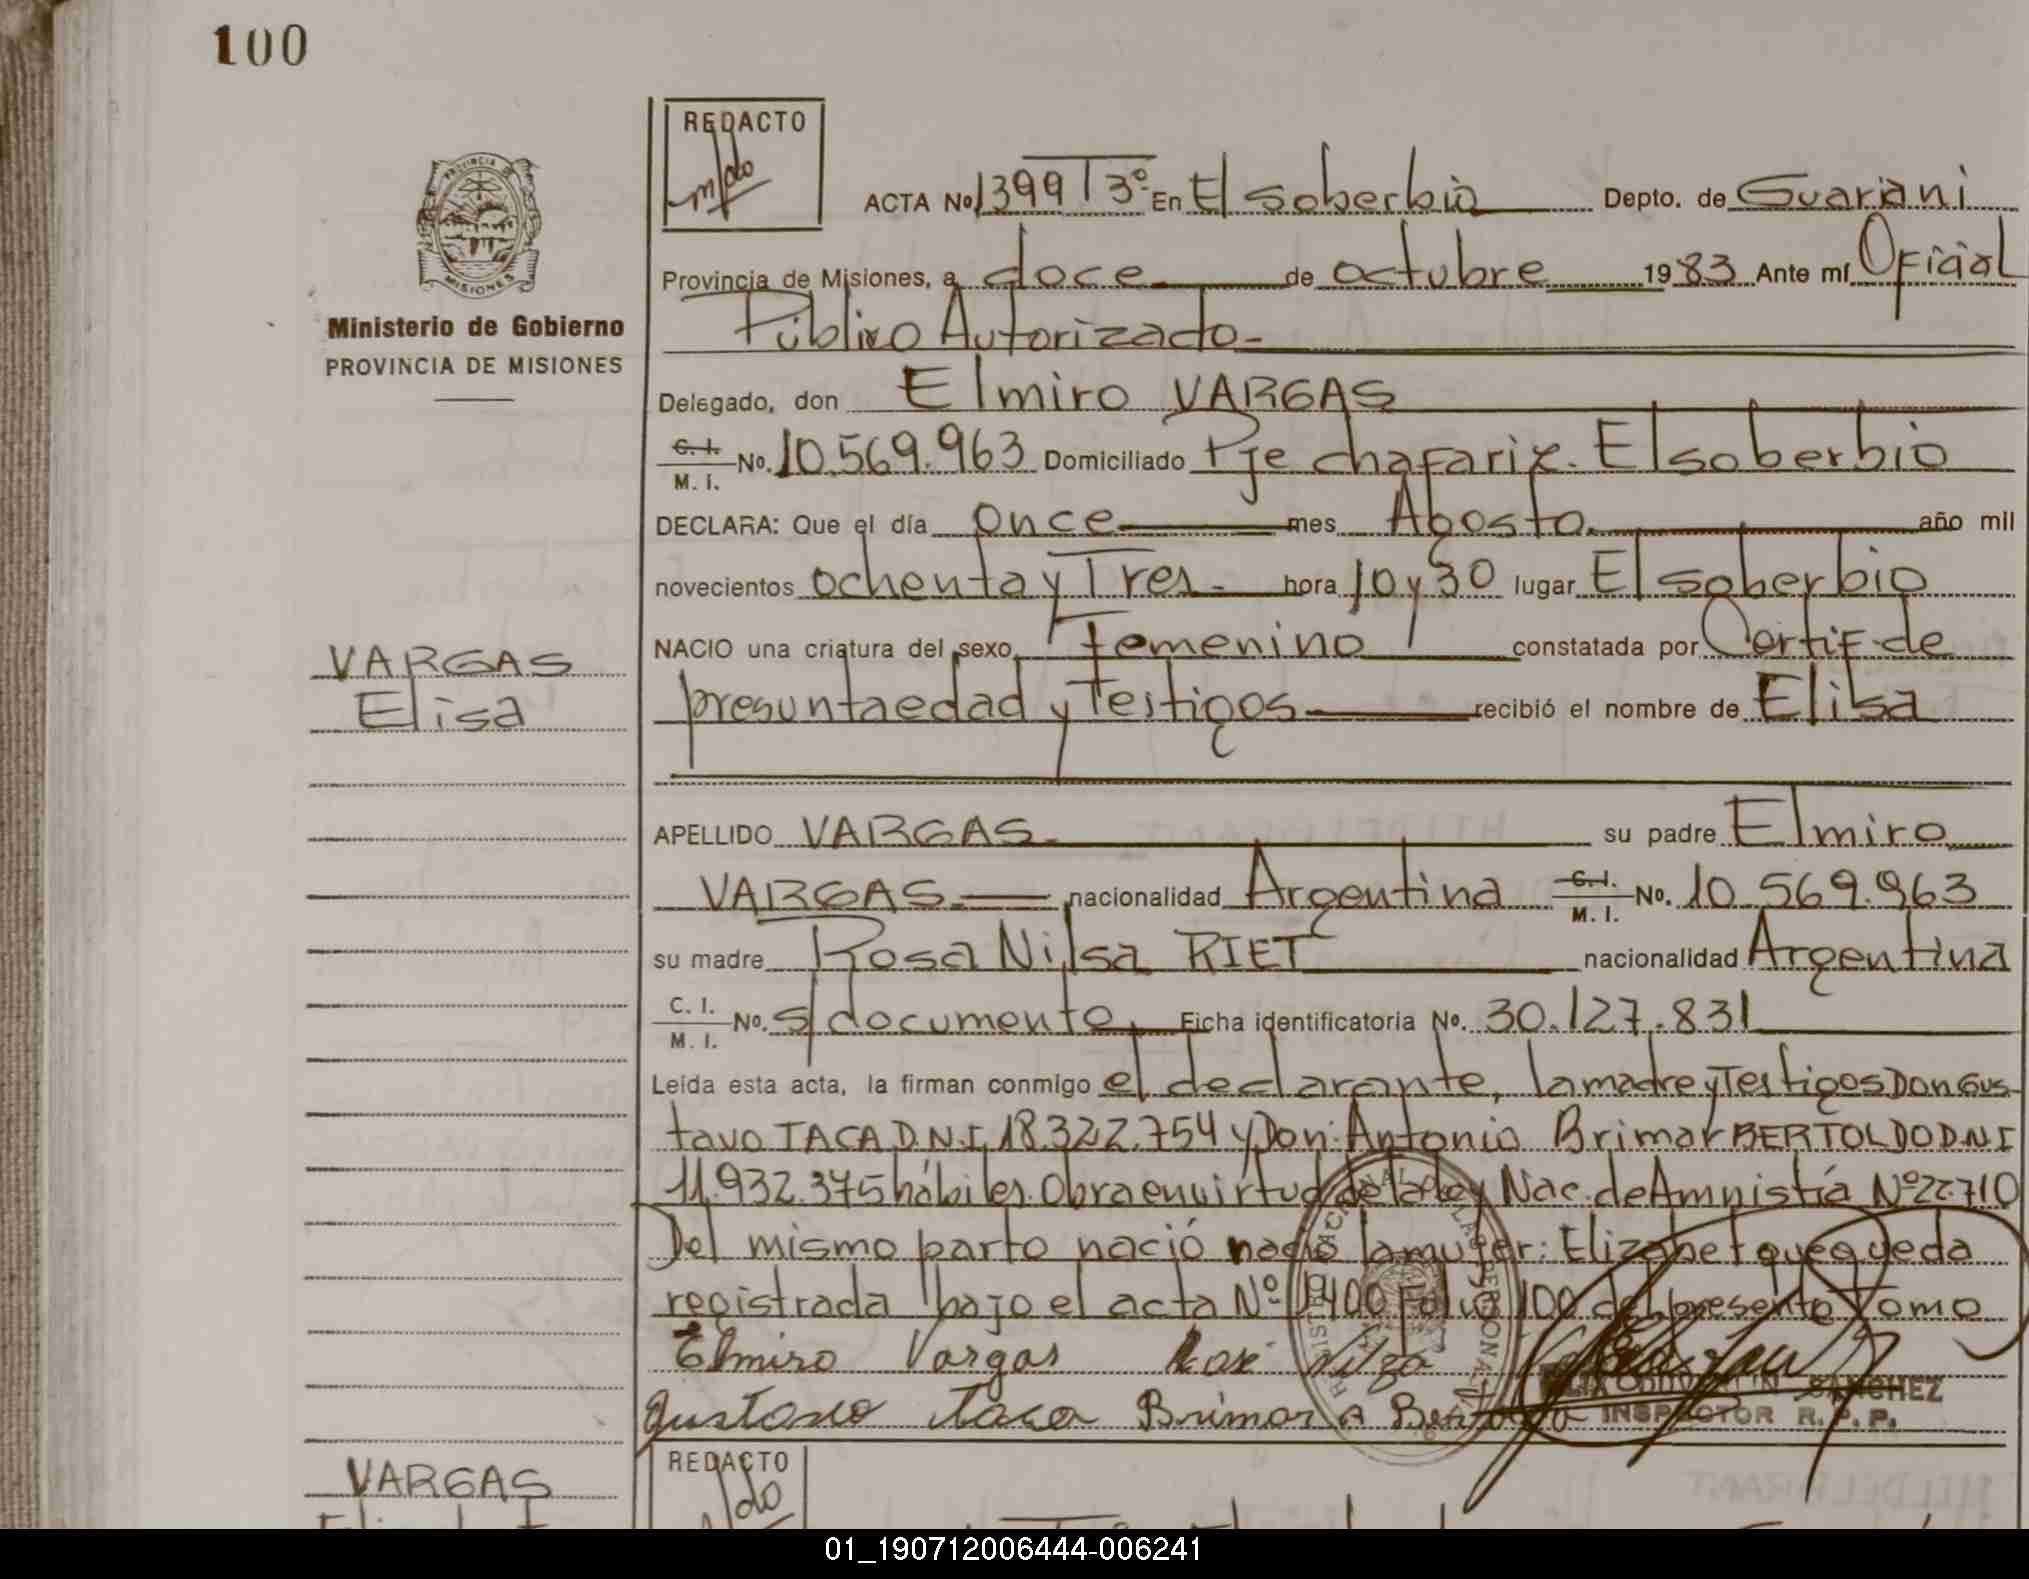 100
REDACTO
ACTA No 1399 T 3º En El soberbio Depto. de Guarani
PROVINCIA DE MISIONES
Provincia de Misiones, a doce de octubre 1983 Ante mí Oficial
Ministerio de Gobierno
Público Autorizado
PROVINCIA DE MISIONES
Delegado, don Elmiro VARGAS
C. I. M. I. No. 10.569.963 Domiciliado Pje chafariz. El soberbio
DECLARA: Que el día once mes Agosto año mil
novecientos ochenta y Tres hora 10 y 30 lugar El soberbio
NACIO una criatura del sexo femenino constatada por Certif de
VARGAS
Elisa
presunta edad y Testigos recibió el nombre de Elisa
APELLIDO VARGAS su padre Elmiro
VARGAS nacionalidad Argentina C. I. M. I. No. 10.569.963
su madre Rosa Nilsa RIET nacionalidad Argentina
C. I. M. I. No. s/documento, Ficha identificatoria No. 30.127.831
Leída esta acta, la firman conmigo el declarante, la madre y Testigos Don Gus-
tavo TACA D.N.I. 18.322.754 y Don: Antonio Brimar BERTOLDO D.N.I
11.932.375 hábiles. Obra en virtud de la ley Nac. de Amnistía Nº 22.710
Del mismo parto nació nació la mujer: Elizabet que queda
registrada bajo el acta Nº 1400 Folio 100 del presente Tomo
Elmiro Vargas Rosa Nilza
SANCHEZ
Gustavo Taca Brimar A Bertoldo INSPECTOR R. P. P.
REDACTO
VARGAS
01_190712006444-006241